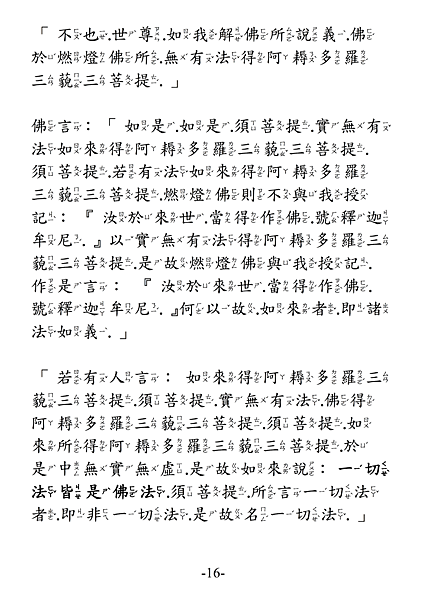 「 不也.世尊.如我解佛所說義.佛
於燃燈佛所.無有法得阿耨多羅
三藐三菩提.」
佛言：「 如是.如是.須菩提.實無有
法.如來得阿耨多羅三藐三菩提.
須菩提.若有法.如來得阿耨多羅
三藐三菩提.燃燈佛則不與我授
記：『 汝於來世.當得作佛.號釋迦
牟尼.』以實無有法得阿耨多羅三
藐三菩提.是故燃燈佛與我授記.
作是言： 『 汝於來世.當得作佛.
號釋迦牟尼.』何以故.如來者.即諸
法如義.」
「 若有人言： 如來得阿耨多羅三
藐三菩提.須菩提.實無有法.佛得
阿耨多羅三藐三菩提.須菩提.如
來所得阿耨多羅三藐三菩提.於
是中無實無虛.是故如來說：一切
法皆是佛法.須菩提.所言一切法
者.即非一切法.是故名一切法.」
-16-